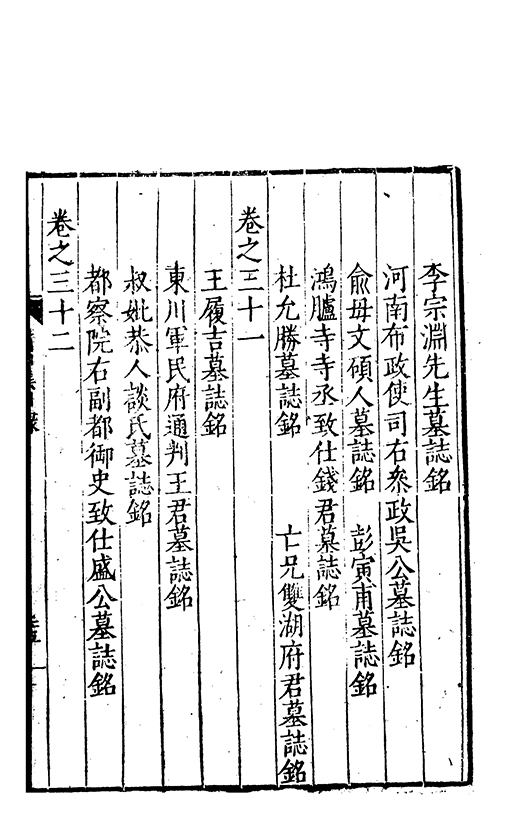 李宗淵先生墓誌銘
河南布政使司右叅政吳公墓誌銘
俞母文碩人墓誌銘　彭寅甫墓誌銘
鴻臚寺寺丞致仕錢君墓誌銘
杜允勝墓誌銘　亡兄雙湖府君墓誌銘
卷之三十一
王履吉墓誌銘
東川軍民府通判王君墓誌銘
叔妣恭人談氏墓誌銘
都察院右副都御史致仕盛公墓誌銘
卷之三十二